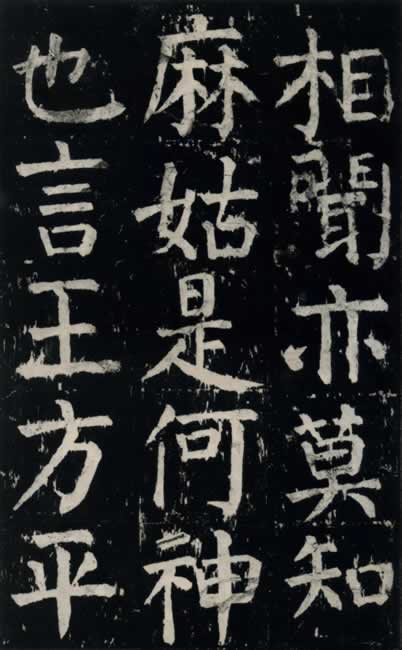 相聞亦莫知
麻姑是何神
也言王方平